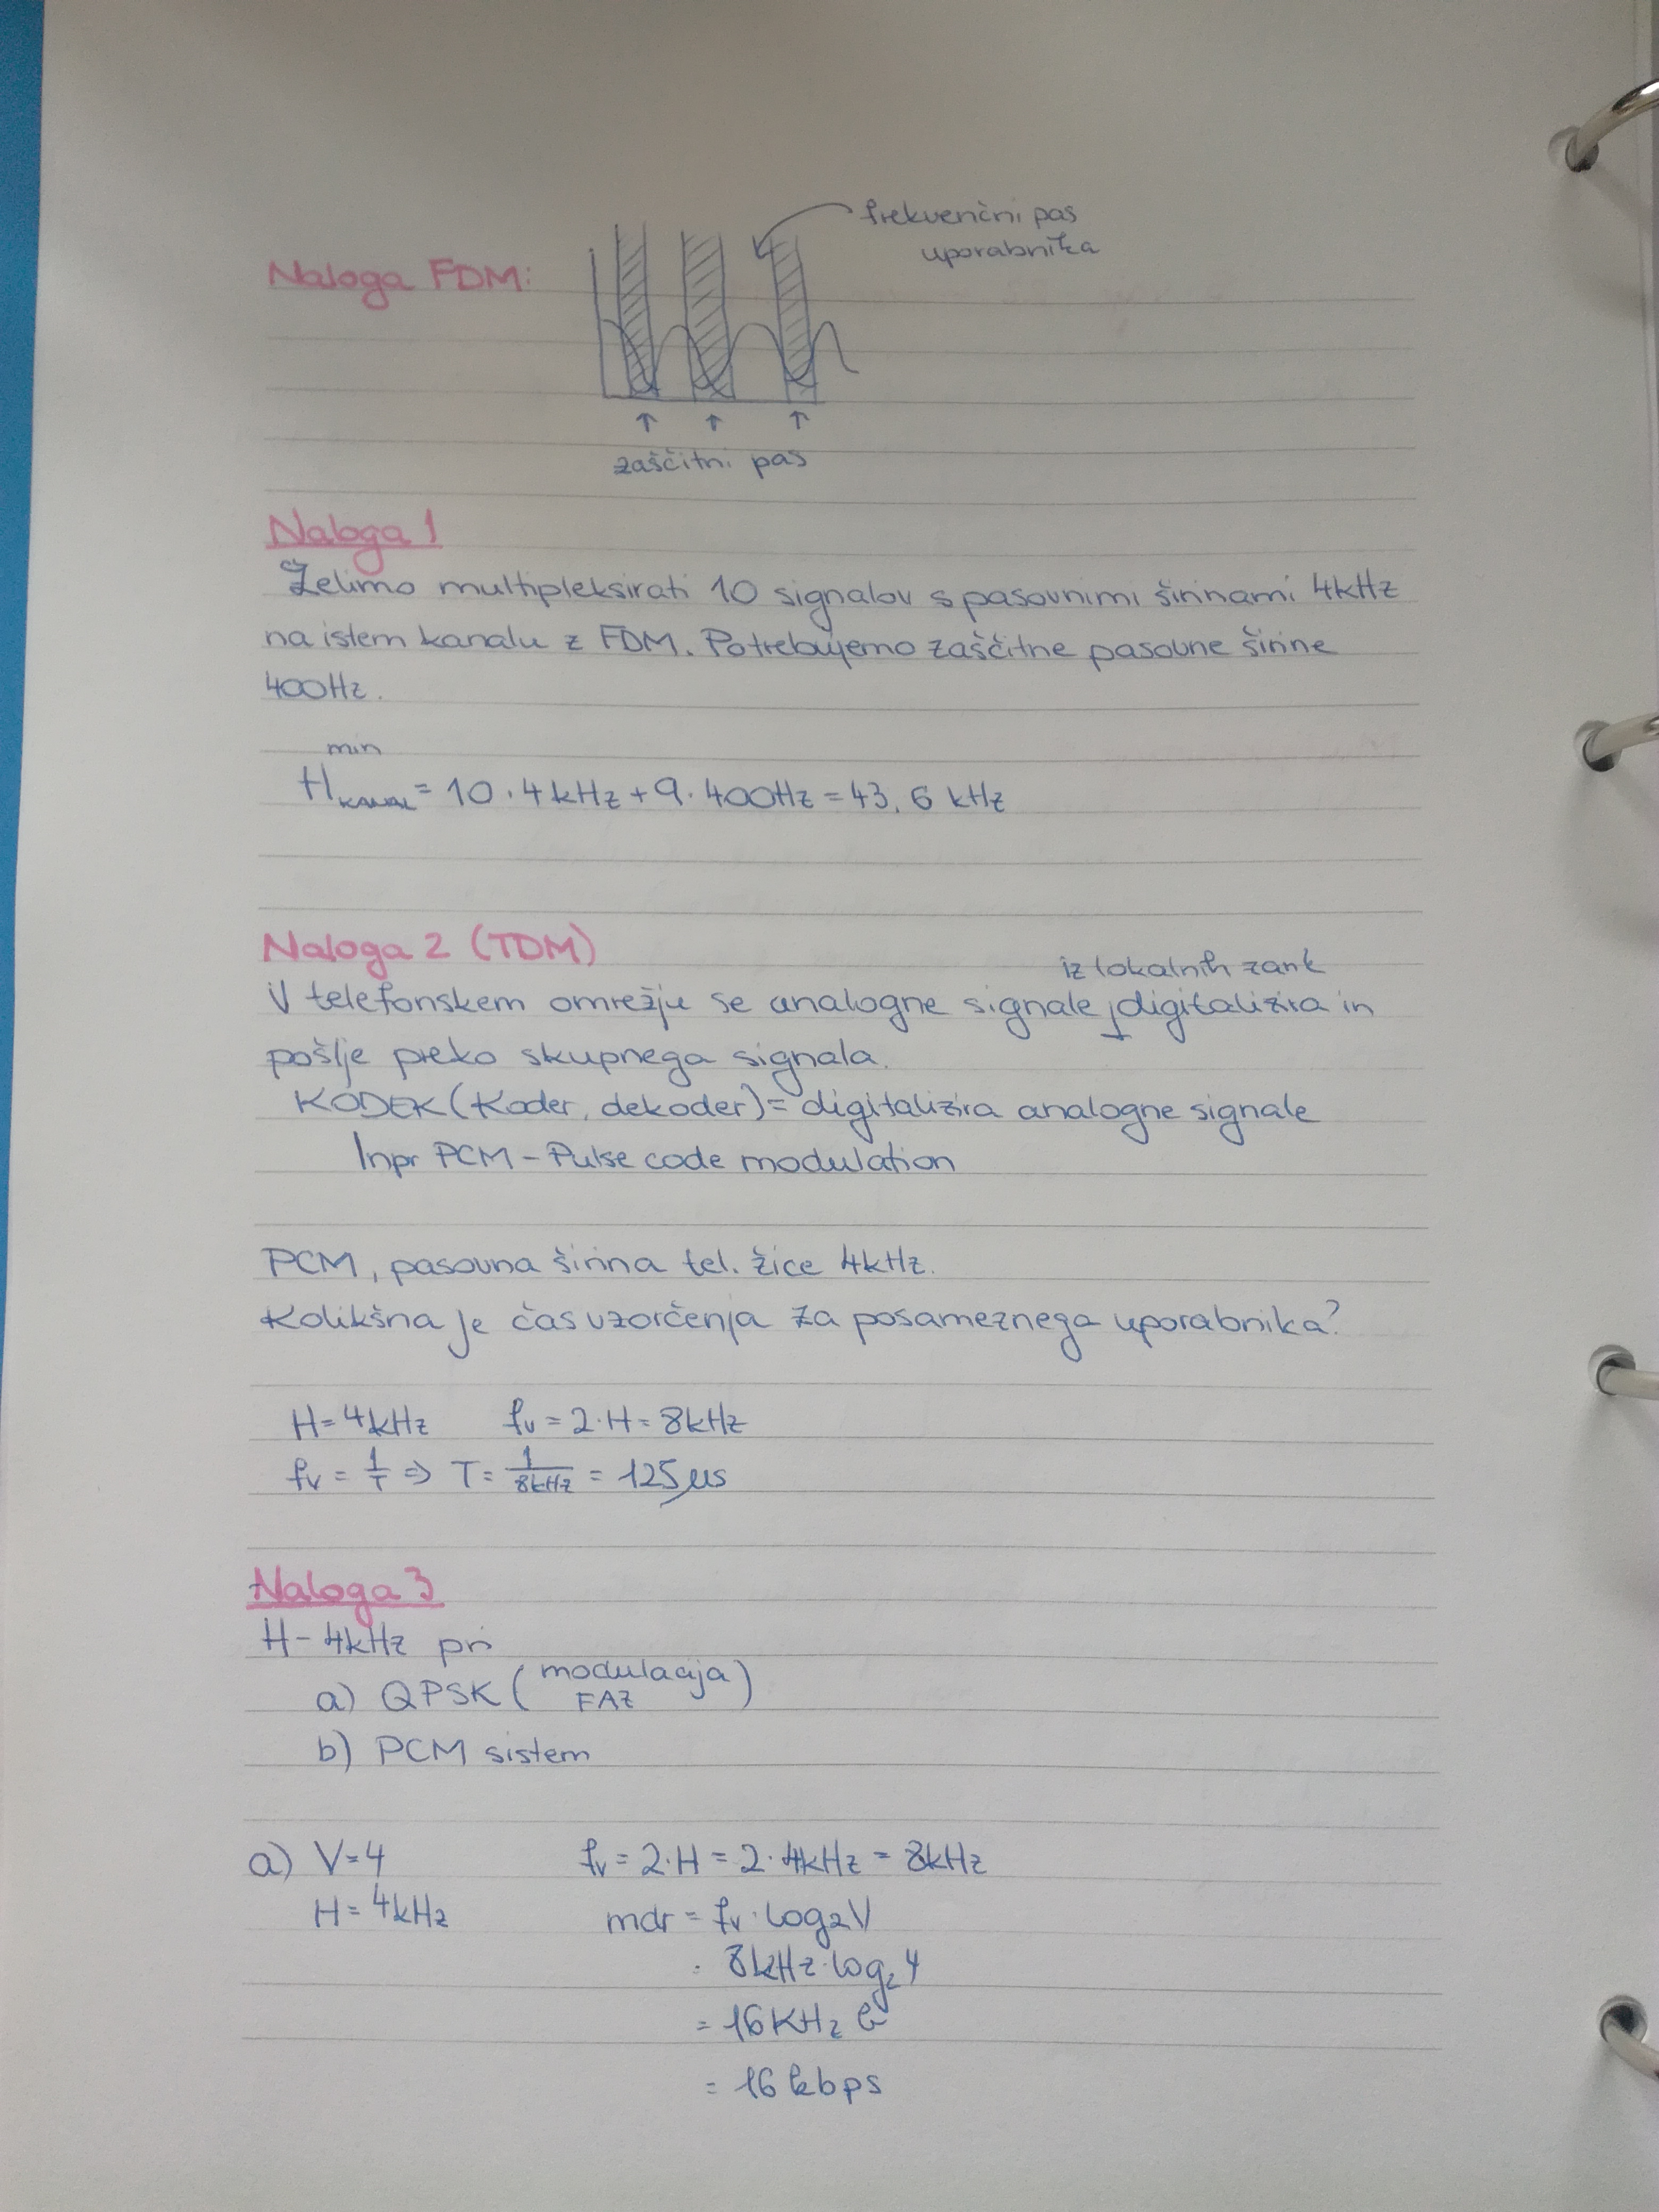 frekvenčni pas
uporabnika
Naloga FDM:
↑ ↑ ↑
zaščitni pas
Naloga 1
Želimo multipleksirati 10 signalov s pasovnimi širinami 4kHz
na istem kanalu z FDM. Potrebujemo zaščitne pasovne širine
400Hz.
min
H_KANAL = 10 · 4kHz + 9 · 400Hz = 43,6 kHz
Naloga 2 (TDM)
iz lokalnih zank
V telefonskem omrežju se analogne signale digitalizira in
pošlje preko skupnega signala.
KODEK (Koder, dekoder) = digitalizira analogne signale
npr PCM - Pulse code modulation
PCM, pasovna širina tel. žice 4kHz.
Kolikšna je čas vzorčenja za posameznega uporabnika?
H = 4kHz fv = 2·H = 8kHz
fv = 1/T ⇒ T = 1/8kHz = 125µs
Naloga 3
H - 4kHz pri
a) QPSK (modulacija FAZ)
b) PCM sistem
a) V=4 fv = 2·H = 2·4kHz = 8kHz
H = 4kHz mdr = fv · log2V
= 8kHz · log2 4
= 16KHz b
= 16 kbps